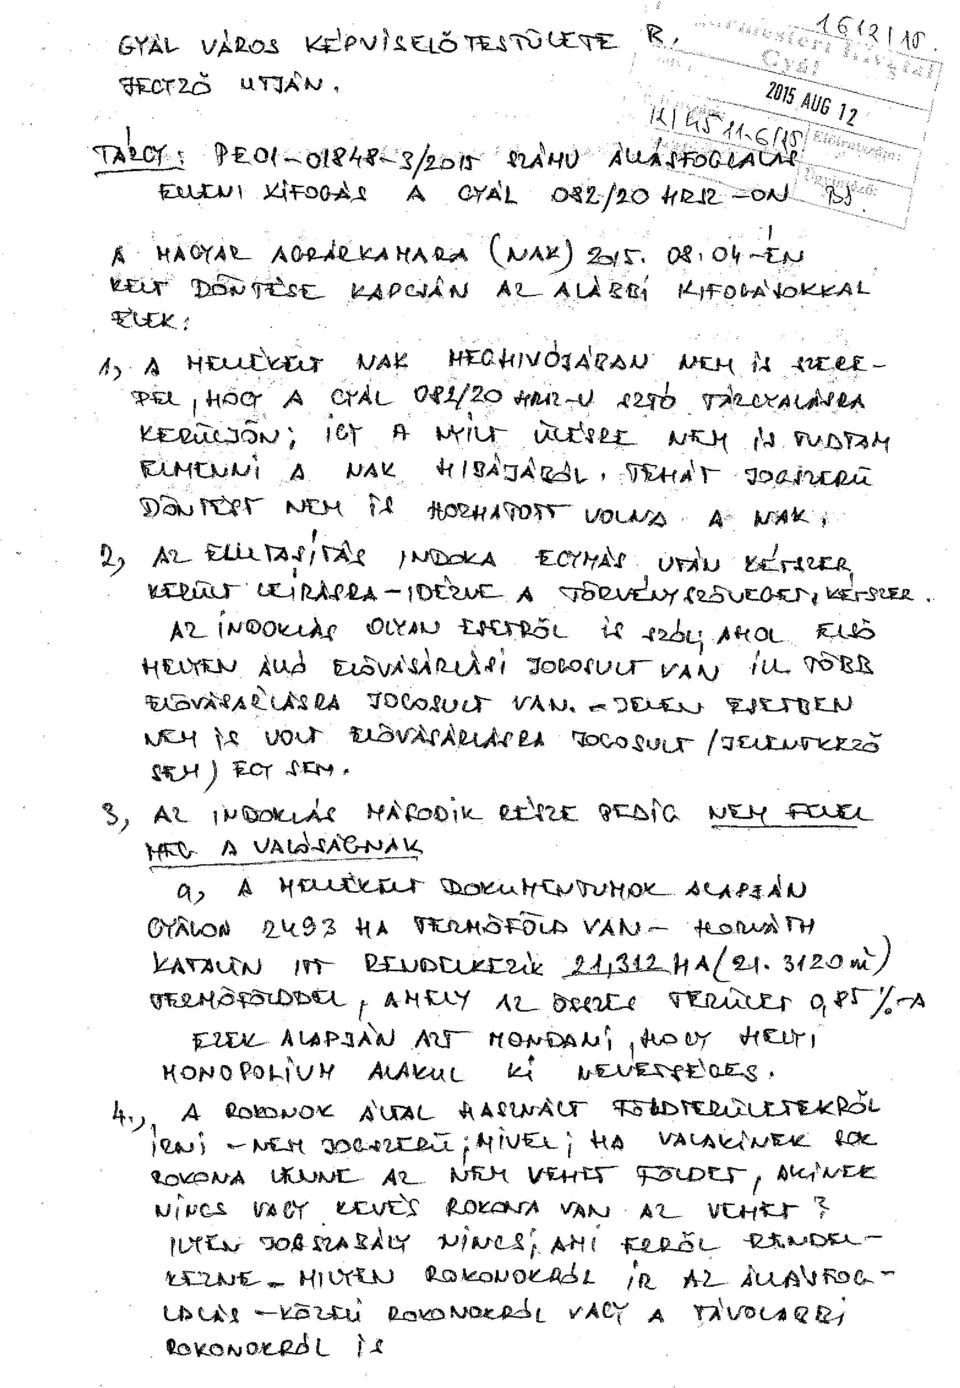 1612/15.
GYÁL VÁROS KÉPVISELŐTESTÜLETE R.
Polgármesteri Hivatal
Gyál
JEGYZŐ UTJÁN.
2015 AUG 12
TÁRGY: PE01-01848-3/2015 SZÁMU ÁLLÁSFOGLALÁS
ELLENI KIFOGÁS A GYÁL 082/20 HRSZ-ON
A MAGYAR AGRÁRKAMARA (NAK) 2015. 08.04-ÉN
KELT DÖNTÉSE KAPCSÁN AZ ALÁBBI KIFOGÁSOKKAL
ÉLEK:
1, A MELLÉKELT NAK MEGHIVÓJÁBAN NEM IS SZERE-
PEL, HOGY A GYÁL 082/20 HRSZ-U SZTÓ TÁRGYALÁSRA
KERÜLJÖN; IGY A NYÍLT ÜLÉSRE NEM IS TUDTAM
ELMENNI A NAK HIBÁJÁBÓL. TEHÁT JOGSZERŰ
DÖNTÉST NEM IS HOZHATOTT VOLNA A NAK.
2, AZ ELUTASÍTÁS INDOKA EGYMÁS UTÁN KÉTSZER
KERÜLT LEÍRÁSRA - IDÉZVE A TÖRVÉNYSZÖVEGET, KÉTSZER.
AZ INDOKLÁS OLYAN ESETRŐL IS SZÓL, AHOL ELSŐ
HELYEN ÁLLÓ ELŐVÁSÁRLÁSI JOGOSULT VAN ILL. TÖBB
ELŐVÁSÁRLÁSRA JOGOSULT VAN. - JELEN ESETBEN
NEM IS VOLT ELŐVÁSÁRLÁSRA JOGOSULT /JELENTKEZŐ
SEM) EGY SEM.
3, AZ INDOKLÁS MÁSODIK RÉSZE PEDIG NEM FELEL
MEG A VALÓSÁGNAK
a, A MELLÉKELT DOKUMENTUMOK ALAPJÁN
GYÁLON 2493 HA TERMŐFÖLD VAN - HORVÁTH
KATALIN ITT RENDELKEZIK 21,312 HA (21.3120 m²)
TERMŐFÖLDDEL, AMELY AZ ÖSSZES TERÜLET 0,85%-A
EZEK ALAPJÁN AZT MONDANI, HOGY HELYI
MONOPOLIUM ALAKUL KI NEVETSÉGES.
4., A ROKONOK ÁLTAL HASZNÁLT FÖLDTERÜLETEKRŐL
ÍRNI - NEM JOGSZERŰ; MIVEL; HA VALAKINEK SOK
ROKONA LENNE AZ NEM VEHET FÖLDET, AKINEK
NINCS VAGY KEVÉS ROKONA VAN AZ VEHET?
ILYEN JOGSZABÁLY NINCS, AMI ERRŐL RENDEL-
KEZNE - MILYEN ROKONOKRÓL ÍR AZ ÁLLÁSFOG-
LALÁS - KÖZELI ROKONOKRÓL VAGY A TÁVOLABBI
ROKONOKRÓL IS